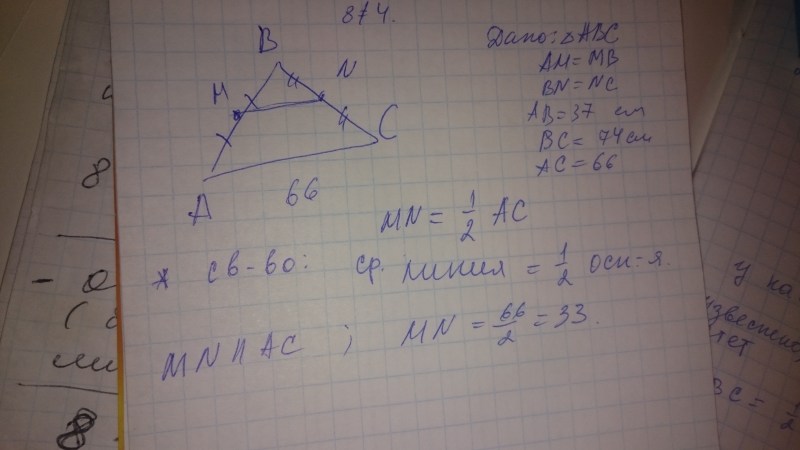 874.
B
M
N
C
A
66
Дано: △ABC
AM = MB
BN = NC
AB = 37 см
BC = 74 см
AC = 66
MN = 1/2 AC
* св-во: ср. линия = 1/2 осн-я.
MN || AC ; MN = 66/2 = 33.
8
- 0
8
у на
BC = 1/2